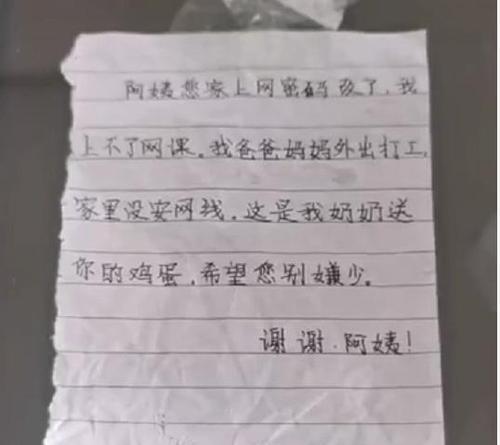 阿姨您家上网密码改了，我
上不了网课。我爸爸妈妈外出打工，
家里没安网线，这是我奶奶送
你的鸡蛋，希望您别嫌少。
谢谢，阿姨！